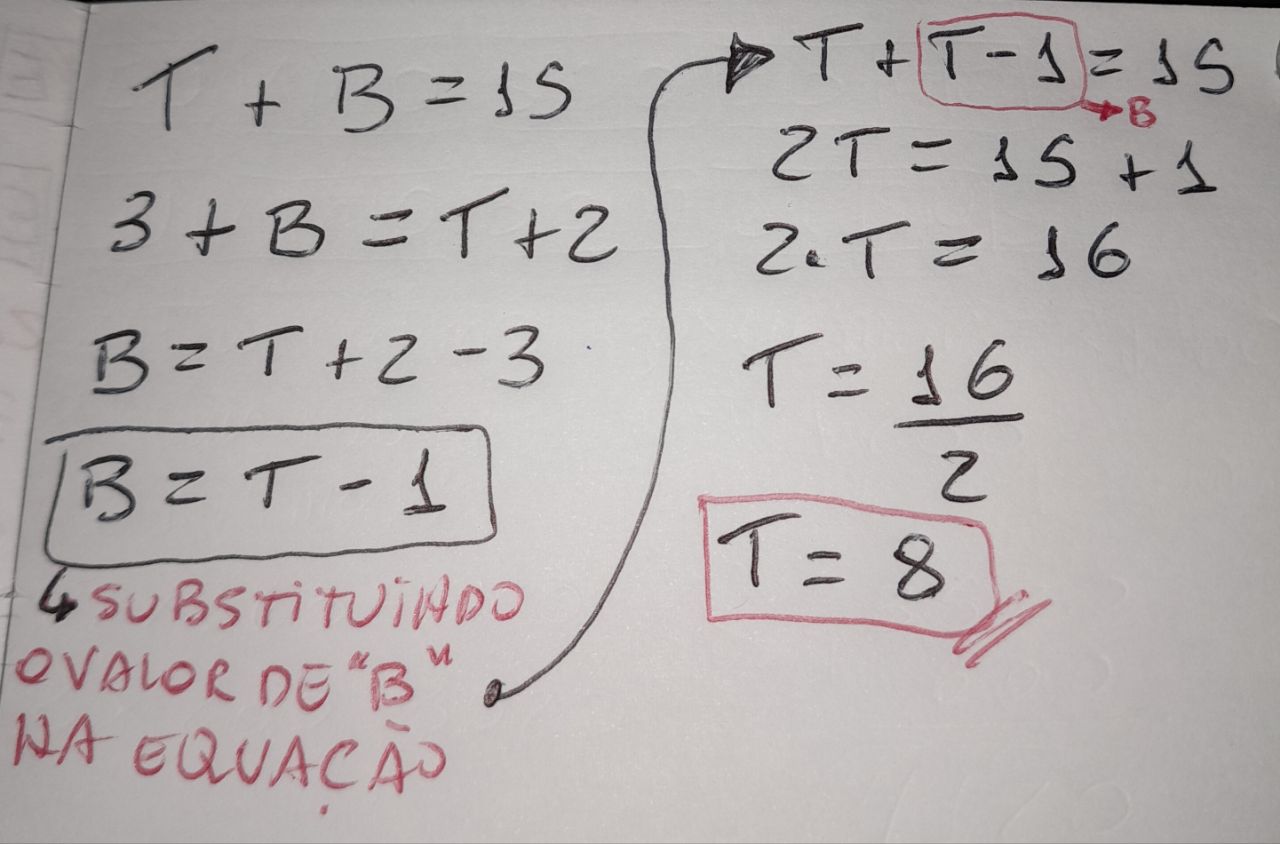 T + B = 15
3 + B = T + 2
B = T + 2 - 3
B = T - 1
↳ SUBSTITUINDO
O VALOR DE "B"
NA EQUAÇÃO
T + T - 1 = 15
B
2T = 15 + 1
2.T = 16
T = 16
2
T = 8